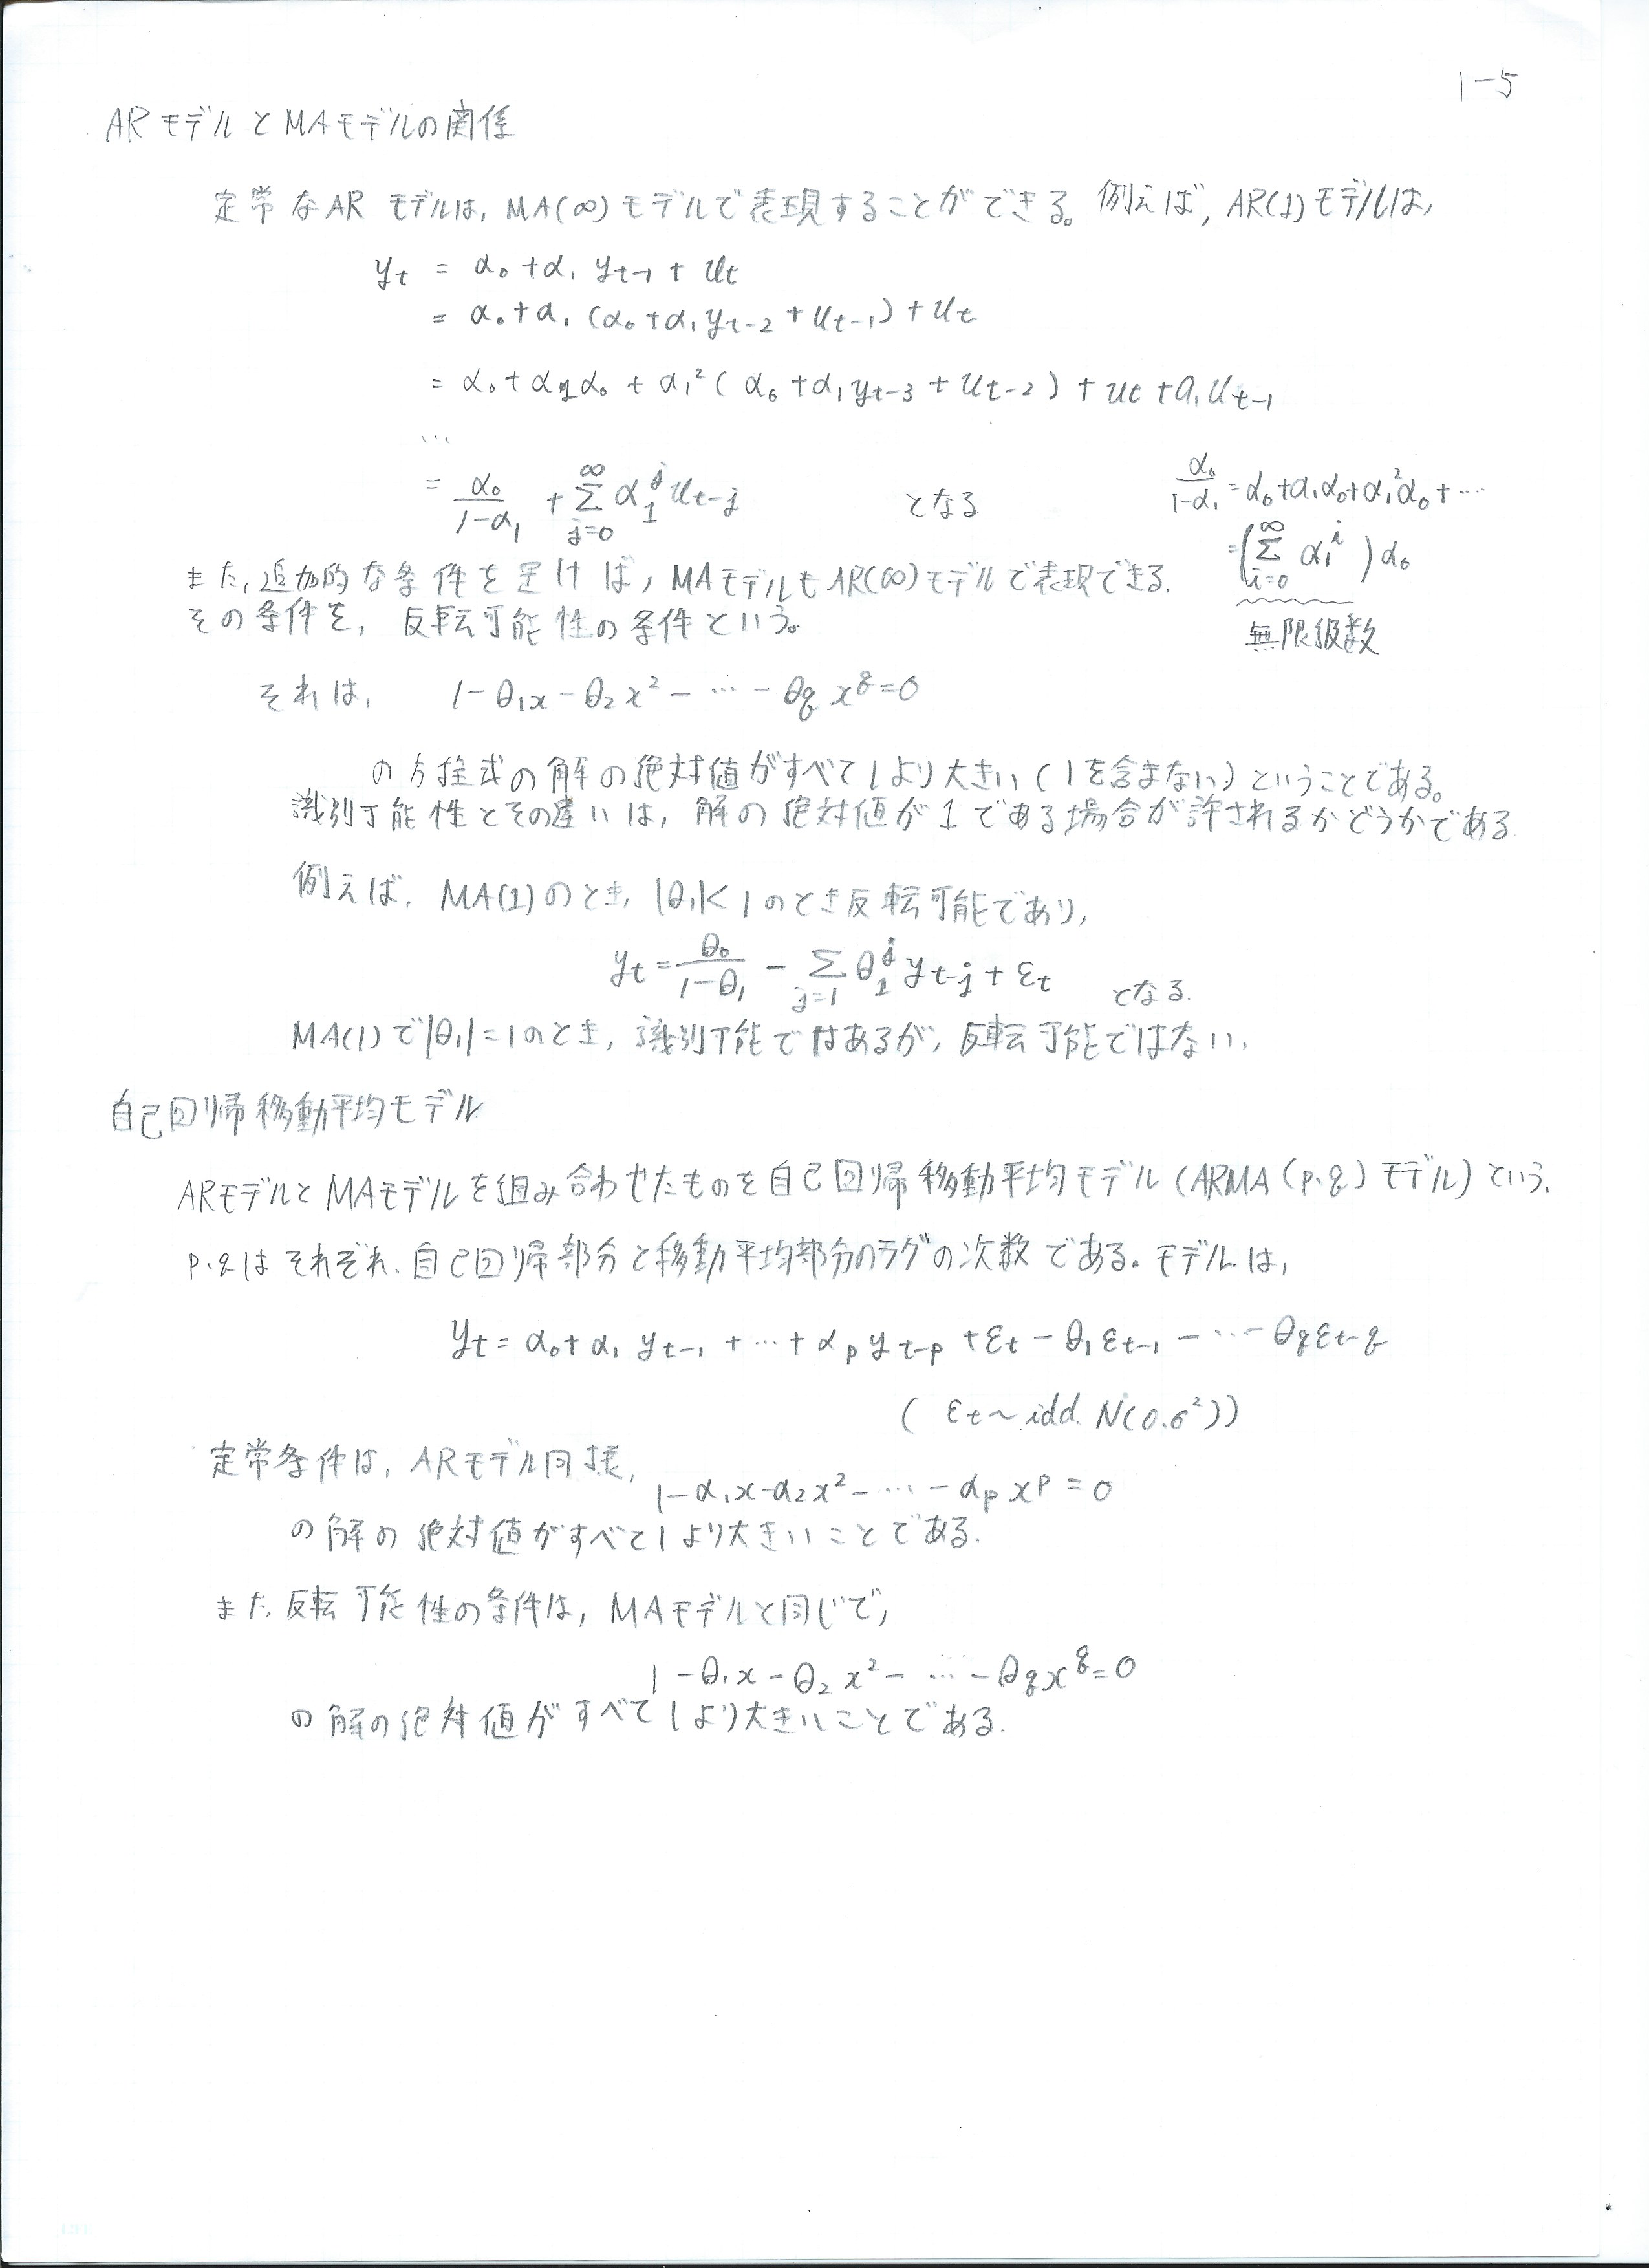 1-5
ARモデルとMAモデルの関係
定常なARモデルは, MA(∞)モデルで表現することができる。例えば, AR(1)モデルは,
y_t = α_0 + α_1 y_{t-1} + u_t
= α_0 + α_1 (α_0 + α_1 y_{t-2} + u_{t-1}) + u_t
= α_0 + α_1 α_0 + α_1^2 (α_0 + α_1 y_{t-3} + u_{t-2}) + u_t + α_1 u_{t-1}
...
= α_0/(1-α_1) + Σ_{j=0}^{∞} α_1^j u_{t-j} となる
α_0/(1-α_1) = α_0 + α_1 α_0 + α_1^2 α_0 + ...
= (Σ_{i=0}^{∞} α_1^i) α_0
無限級数
また, 追加的な条件を足けば, MAモデルもAR(∞)モデルで表現できる.
その条件を, 反転可能性の条件という。
それは, 1 - θ_1 x - θ_2 x^2 - ... - θ_q x^q = 0
の方程式の解の絶対値がすべて1より大きい(1を含まない)ということである。
識別可能性とその違いは, 解の絶対値が1である場合が許されるかどうかである
例えば, MA(1)のとき, |θ_1| < 1 のとき反転可能であり,
y_t = θ_0/(1-θ_1) - Σ_{j=1} θ_1^j y_{t-j} + ε_t となる.
MA(1)で|θ_1| = 1のとき, 識別可能ではあるが, 反転可能ではない,
自己回帰移動平均モデル
ARモデルとMAモデルを組み合わせたものを自己回帰移動平均モデル(ARMA(p.q)モデル)という.
p.qはそれぞれ, 自己回帰部分と移動平均部分のラグの次数である. モデルは,
y_t = α_0 + α_1 y_{t-1} + ... + α_p y_{t-p} + ε_t - θ_1 ε_{t-1} - ... - θ_q ε_{t-q}
( ε_t ~ idd. N(0.σ^2))
定常条件は, ARモデル同様,
1 - α_1 x - α_2 x^2 - ... - α_p x^p = 0
の解の絶対値がすべて1より大きいことである.
また, 反転可能性の条件は, MAモデルと同じで,
1 - θ_1 x - θ_2 x^2 - ... - θ_q x^q = 0
の解の絶対値がすべて1より大きいことである.